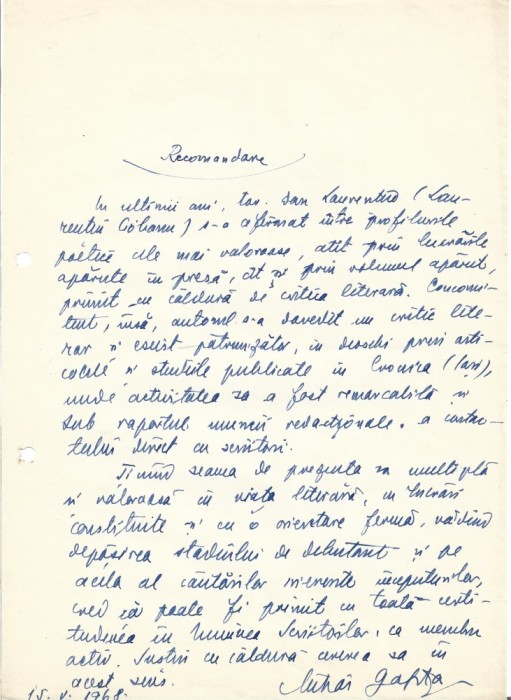 Recomandare
În ultimii ani, tov. Dan Laurențiu (Lau-
rențiu Ciobanu) s-a afirmat între profilurile
poetice cele mai valoroase, atît prin lucrările
apărute în presă, cît și prin volumul apărut,
primit cu căldură de critica literară. Concomi-
tent, însă, autorul s-a dovedit un critic lite-
rar și eseist pătrunzător, în deosebi prin arti-
colele și studiile publicate în Cronica (Iași),
unde activitatea sa a fost remarcabilă și
sub raportul muncii redacționale, a contac-
tului direct cu scriitori.
Ținînd seama de prezența sa multiplă
și valoroasă în viața literară, cu lucrări
și cu o orientare fermă, vădind
depășirea stadiului de debutant și pe
acela al căutărilor inerente începuturilor,
cred că poate fi primit cu toată certi-
tudinea în Uniunea Scriitorilor, ca membru
activ. Susțin cu căldură cererea sa în
acest sens.
Mihai Gafița
15.V.1968.